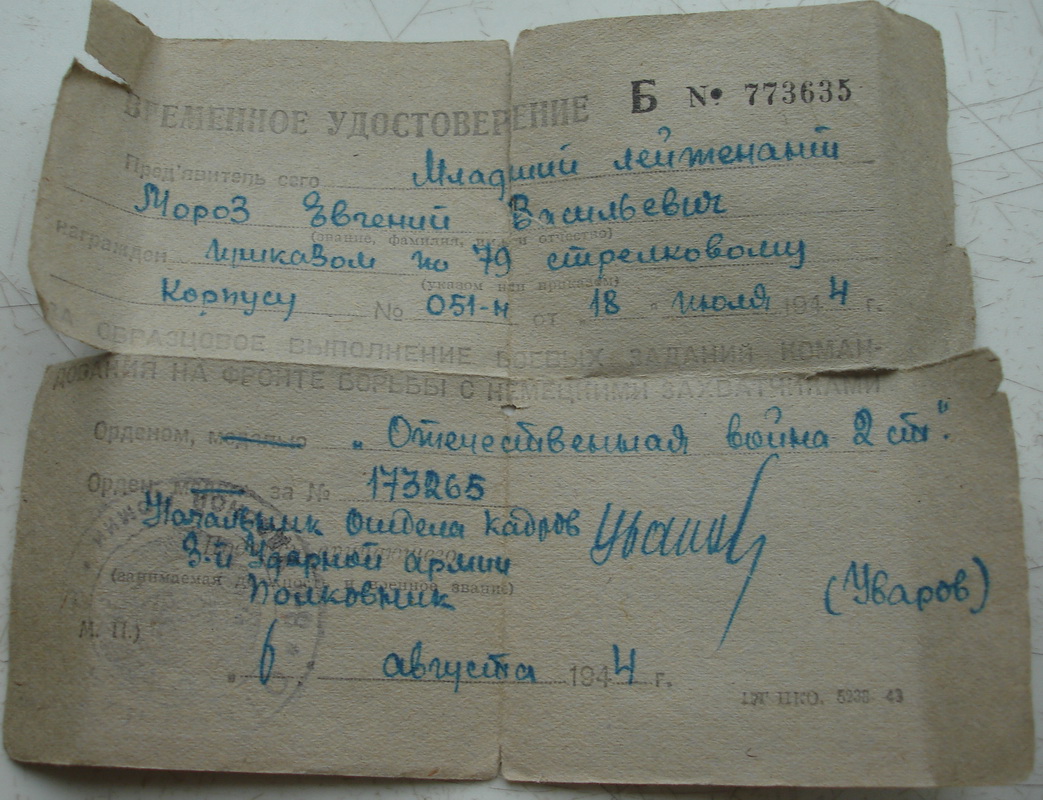 ВРЕМЕННОЕ УДОСТОВЕРЕНИЕ Б № 773635
Пред'явитель сего Младший лейтенант
Мороз Евгений Васильевич
(звание, фамилия, имя и отчество)
награжден приказом по 79 стрелковому
(указом или приказом)
Корпусу № 051-н от „18" июля 1944 г.
ЗА ОБРАЗЦОВОЕ ВЫПОЛНЕНИЕ БОЕВЫХ ЗАДАНИЙ КОМАН-
ДОВАНИЯ НА ФРОНТЕ БОРЬБЫ С НЕМЕЦКИМИ ЗАХВАТЧИКАМИ
Орденом, медалью „Отечественная война 2 ст".
Орден, медаль за № 173265
Начальник отдела кадров
3-й Ударной армии
(занимаемая должность и военное звание)
Полковник (Уваров)
М. П.)
„6" августа 1944 г.